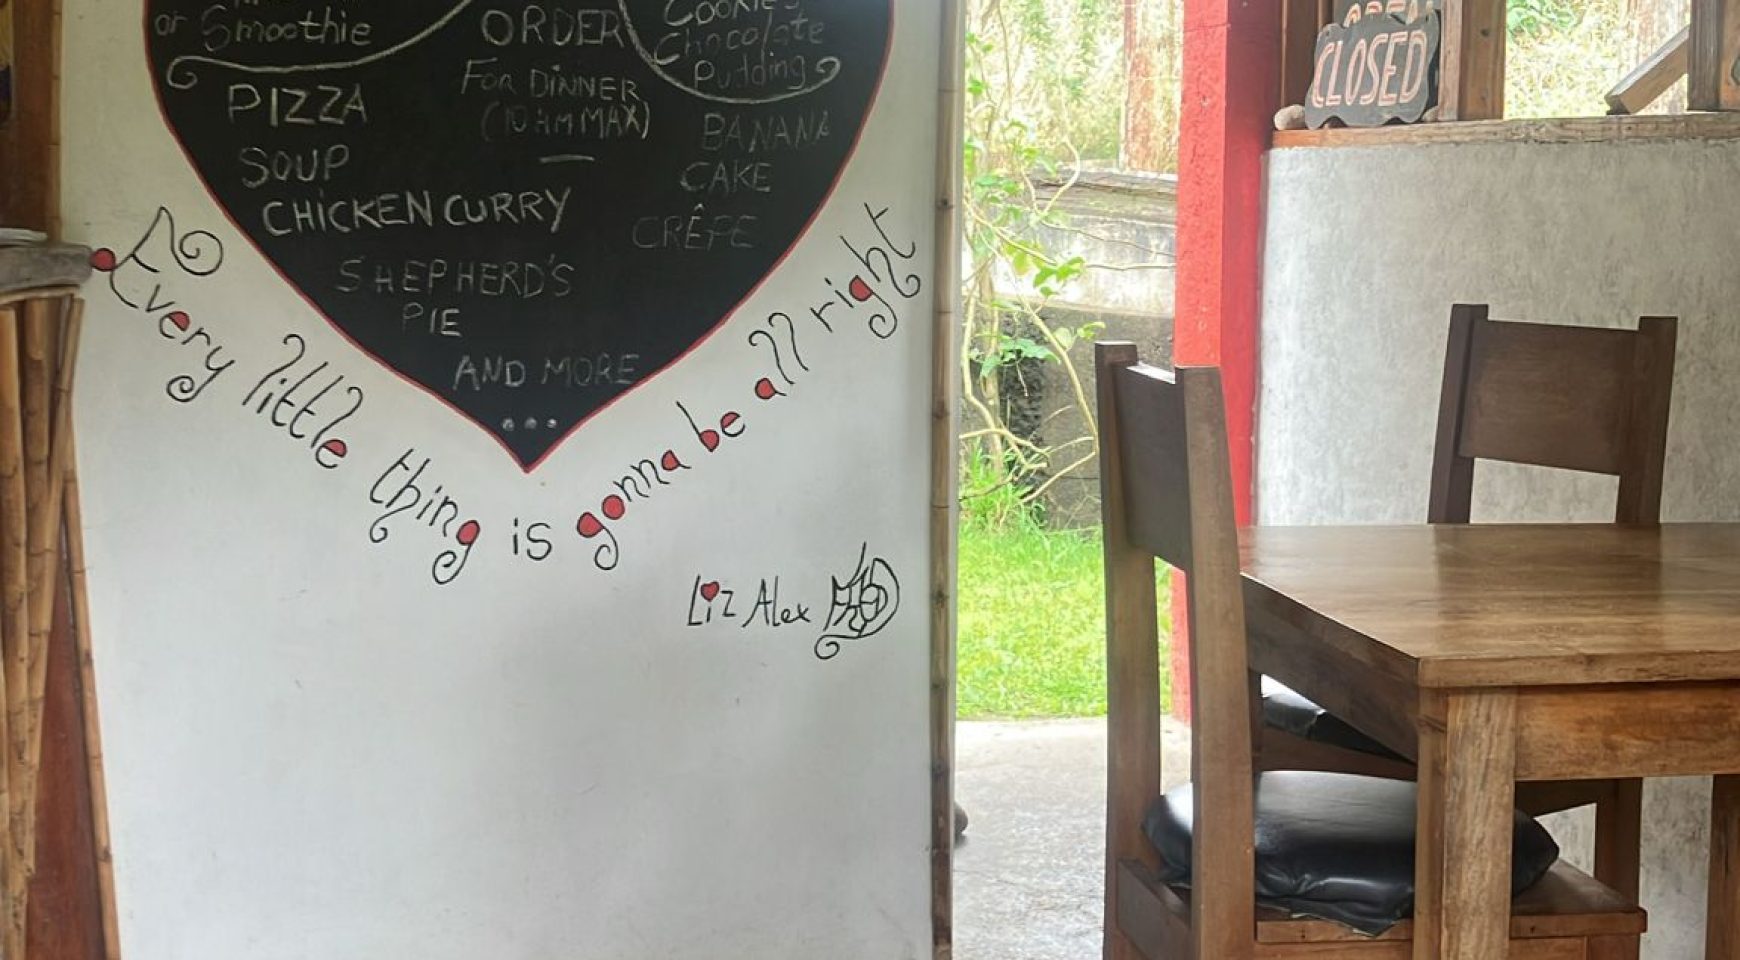 or Smoothie
PIZZA
SOUP
CHICKEN CURRY
SHEPHERD'S
PIE
AND MORE
...
ORDER
FOR DINNER
(10 AM MAX)
Cookies
Chocolate
Pudding
BANANA
CAKE
CRÊPE
Every little thing is gonna be all right
Liz Alex
OPEN
CLOSED